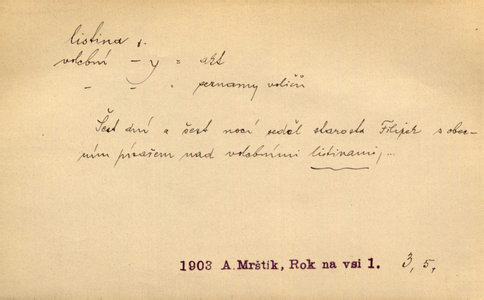 listina f.
volební – y = akt
– „ – = seznamy voličů
Šest dní a šest nocí seděl starosta Filipek s obec-
ním písařem nad volebními listinami,...
1903 A. Mrštík, Rok na vsi 1. 3, 5,